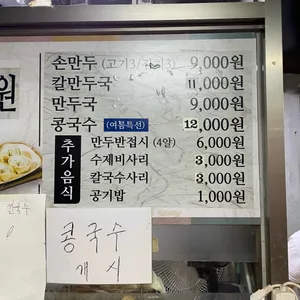 원
손만두 (고기3/김치3) 9,000원
칼만두국 11,000원
만두국 9,000원
콩국수 (여름특선) 12,000원
추가음식
만두반접시 (4알) 6,000원
수제비사리 3,000원
칼국수사리 3,000원
공기밥 1,000원
콩국수
개시